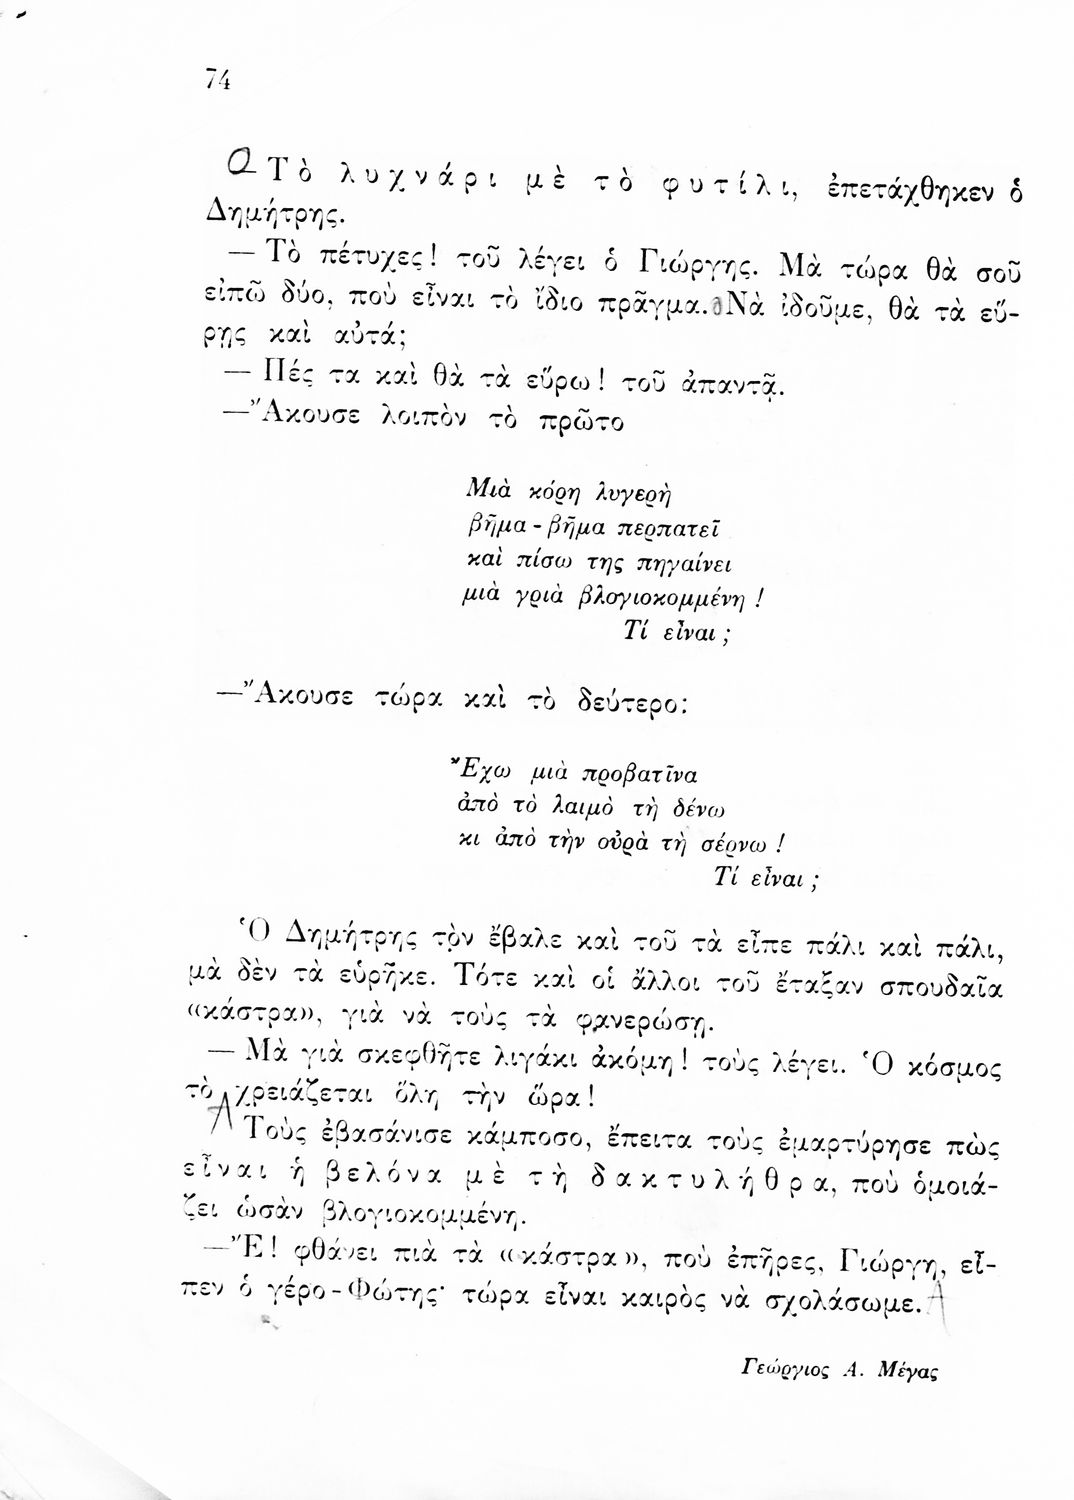 74
Τὸ λυχνάρι μὲ τὸ φυτίλι, ἐπετάχθηκεν ὁ
Δημήτρης.
— Τὸ πέτυχες! τοῦ λέγει ὁ Γιώργης. Μὰ τώρα θὰ σοῦ
εἰπῶ δύο, ποὺ εἶναι τὸ ἴδιο πρᾶγμα. Νὰ ἰδοῦμε, θὰ τὰ εὕ-
ρῃς καὶ αὐτά;
— Πές τα καὶ θὰ τὰ εὕρω! τοῦ ἀπαντᾷ.
—Ἄκουσε λοιπὸν τὸ πρῶτο
Μιὰ κόρη λυγερὴ
βῆμα - βῆμα περπατεῖ
καὶ πίσω της πηγαίνει
μιὰ γριὰ βλογιοκομμένη !
Τί εἶναι ;
—Ἄκουσε τώρα καὶ τὸ δεύτερο:
Ἔχω μιὰ προβατῖνα
ἀπὸ τὸ λαιμὸ τὴ δένω
κι ἀπὸ τὴν οὐρὰ τὴ σέρνω !
Τί εἶναι ;
Ὁ Δημήτρης τὸν ἔβαλε καὶ τοῦ τὰ εἶπε πάλι καὶ πάλι,
μὰ δὲν τὰ εὑρῆκε. Τότε καὶ οἱ ἄλλοι τοῦ ἔταξαν σπουδαῖα
«κάστρα», γιὰ νὰ τοὺς τὰ φανερώσῃ.
— Μὰ γιὰ σκεφθῆτε λιγάκι ἀκόμη! τοὺς λέγει. Ὁ κόσμος
τὸ χρειάζεται ὅλη τὴν ὥρα!
Τοὺς ἐβασάνισε κάμποσο, ἔπειτα τοὺς ἐμαρτύρησε πὼς
εἶναι ἡ βελόνα μὲ τὴ δακτυλήθρα, ποὺ ὁμοιά-
ζει ὡσὰν βλογιοκομμένη.
—Ἔ! φθάνει πιὰ τὰ «κάστρα», ποὺ ἐπῆρες, Γιώργη, εἶ-
πεν ὁ γέρο-Φώτης· τώρα εἶναι καιρὸς νὰ σχολάσωμε.
Γεώργιος Α. Μέγας